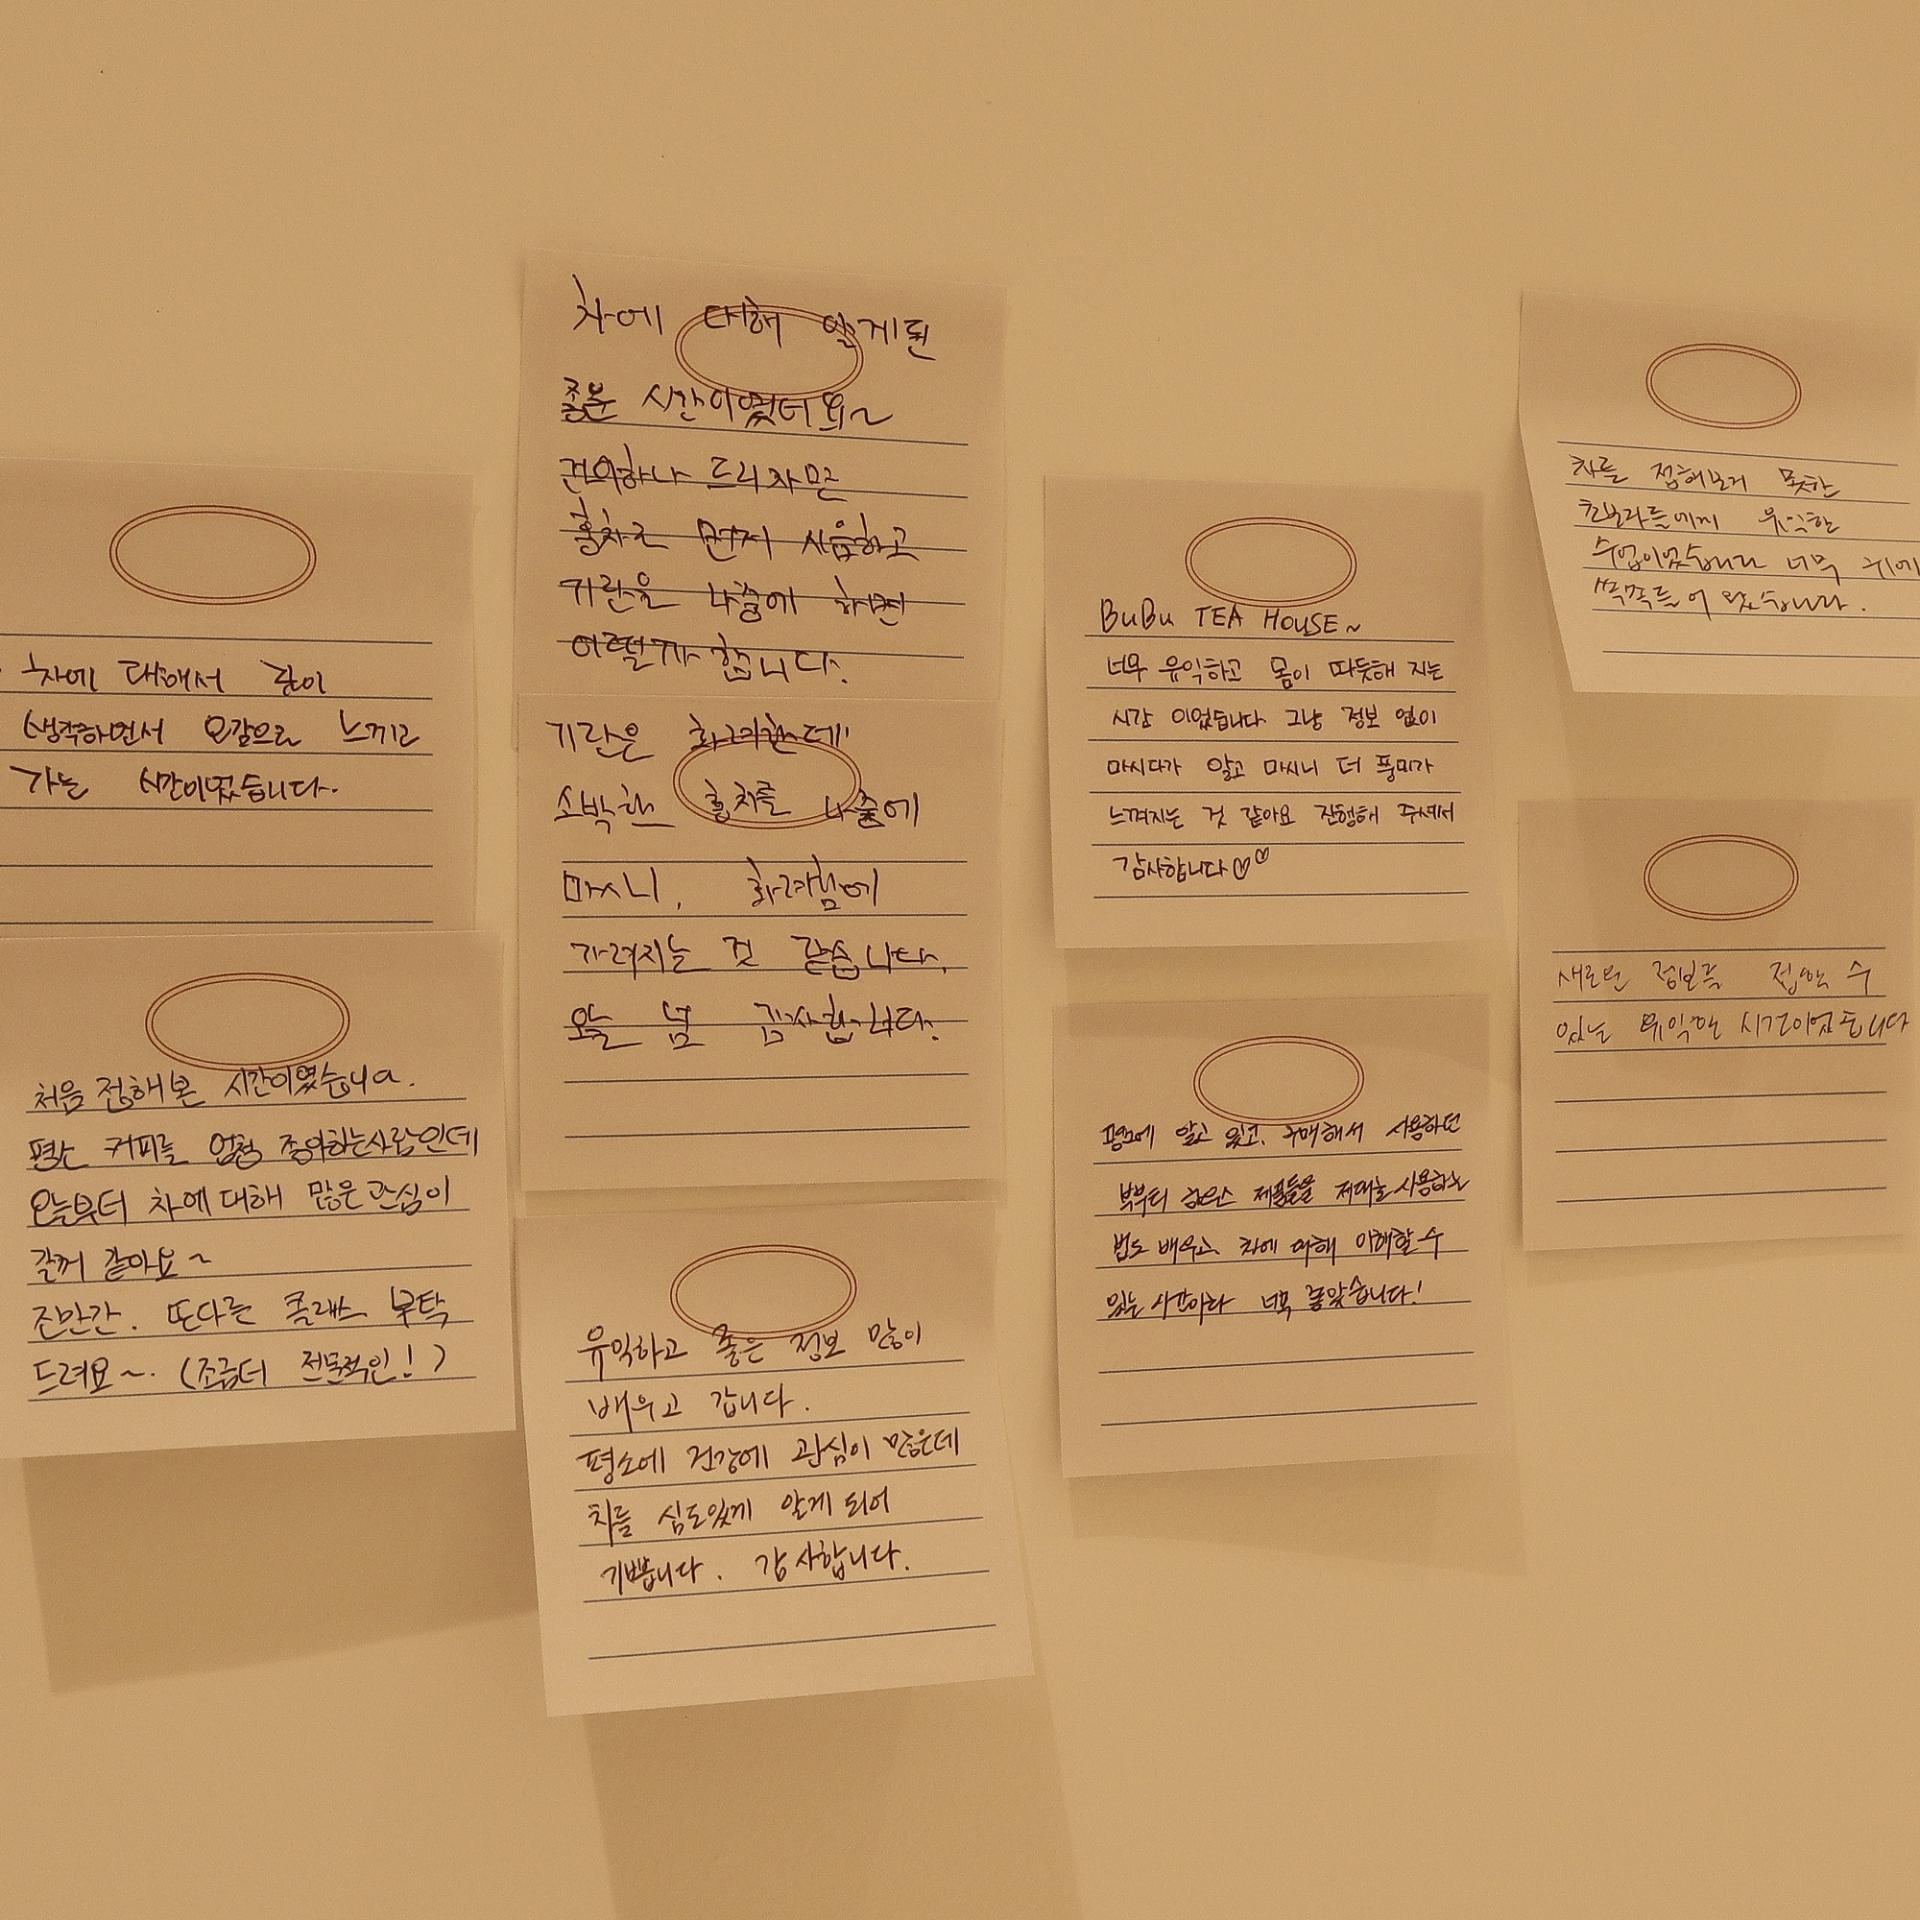 차에 대해서 깊이
생각하면서 오감으로 느끼고
가는 시간이었습니다.
처음 접해본 시간이였습니다.
평소 커피를 엄청 좋아하는사람인데
오늘부터 차에 대해 많은 관심이
갈꺼 같아요~
조만간. 또다른 클래스 부탁
드려요~. (조금더 전문적인!)
차에 대해 알게된
좋은 시간이였더요~
건의하나 드리자면
홍차로 먼저 시음하고
기란을 나중에 하면
어떨까 합니다.
기란은 화려한데
소박한 홍차를 나중에
마시니, 화려함에
가려지는 것 같습니다.
오늘 넘 감사합니다.
유익하고 좋은 정보 많이
배우고 갑니다.
평소에 건강에 관심이 많은데
차를 심도있게 알게 되어
기쁩니다. 감사합니다.
BuBu TEA HOUSE~
너무 유익하고 몸이 따듯해 지는
시간 이었습니다 그냥 정보 없이
마시다가 알고 마시니 더 풍미가
느껴지는 것 같아요 진행해 주셔서
감사합니다♡♡
평소에 알고 있고, 구매해서 사용하던
부부티 하우스 제품들을 제대로 사용하는
법도 배우고, 차에 대해 이해할 수
있는 시간이라 너무 좋았습니다!
차를 접해보지 못한
초보자들에게 유익한
수업이었습니다 너무 귀에
쏙쏙들어 왔습니다.
새로운 정보를 접할 수
있는 유익한 시간이었습니다